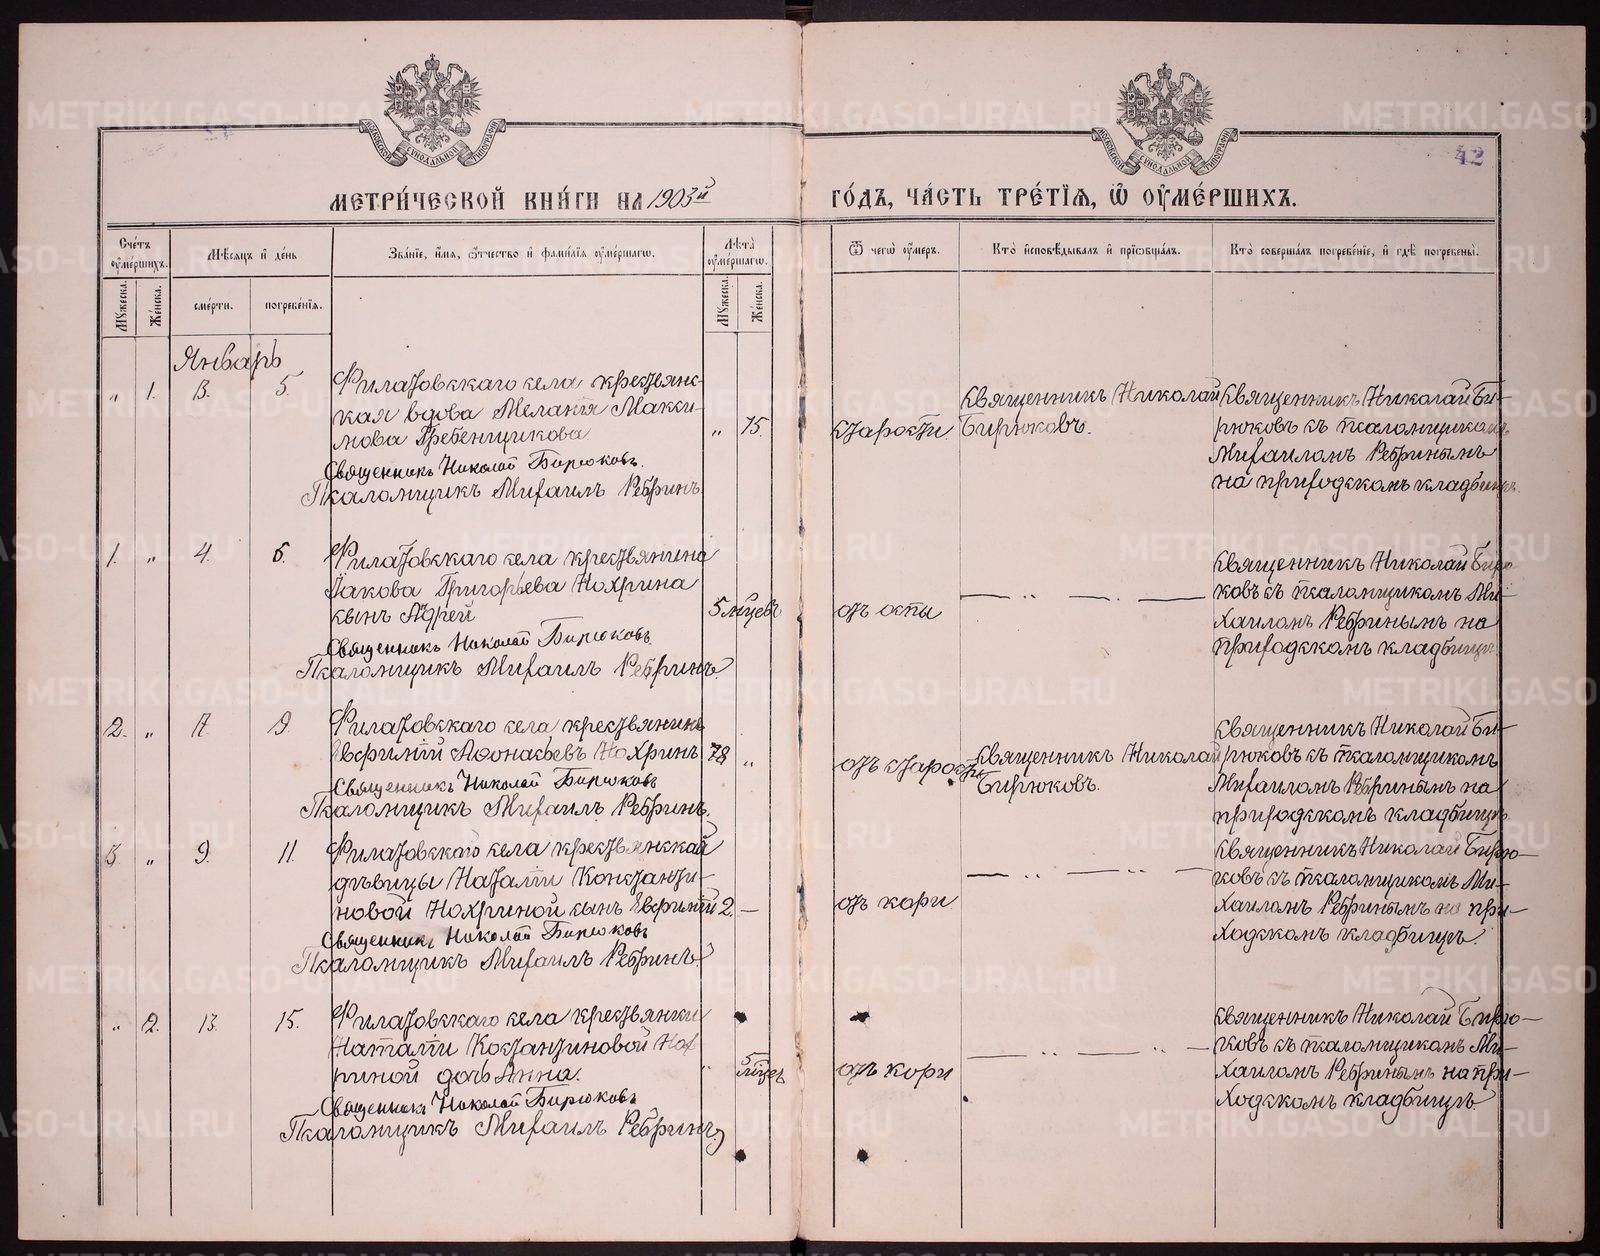 МОСКОВСКОЙ СУНОДАЛЬНОЙ ТИПОГРАФІИ
МОСКОВСКОЙ СУНОДАЛЬНОЙ ТИПОГРАФІИ
42
МЕТРИ́ЧЕСКОЙ КНИ́ГИ НА 1903й
ГО́ДЪ, ЧА́СТЬ ТРЕ́ТІѦ, Ѿ ОУМЕ́РШИХЪ.
Сче́тъ оуме́ршихъ.
Мѣсяцъ и҆ де́нь
Зва́ніе, и҆́мя, ѻ҆́тчество и҆ фамилія оуме́ршагѡ.
Лѣта̀ оуме́ршагѡ.
Ѿ чегѡ̀ оу́меръ.
Кто̀ и҆сповѣ́дывалъ и҆ прїѡбща́лъ.
Кто̀ соверша́лъ погребе́нїе, и҆ гдѣ̀ погребены̀.
Мꙋжеска.
Же́нска.
сме́рти.
погребе́нїя.
Мꙋжеска.
Же́нска.
Январь
" 1. 3. 5.
Филатовскаго села крестьянс-
кая вдова Меланія Макси-
мова Гребенщикова
" 75.
Священникъ Николай Бирюковъ.
Псаломщикъ Михаилъ Ребринъ.
старости.
Священникъ Николай
Бирюковъ.
Священникъ Николай Би-
рюковъ съ псаломщикомъ
Михаиломъ Ребринымъ
на приходскомъ кладбищѣ.
1. " 4. 6.
Филатовскаго села крестьянина
Іакова Григорьева Нохрина
сынъ Адрей
5 мѣцевъ
Священникъ Николай Бирюковъ.
Псаломщикъ Михаилъ Ребринъ
отъ оспы
— " — . —
Священникъ Николай Бирю-
ковъ съ псаломщикомъ Ми-
хаиломъ Ребринымъ на
приходскомъ кладбищѣ
2. " 7. 9.
Филатовскаго села крестьянинъ
Евфимій Афонасьевъ Нохринъ
78 "
Священникъ Николай Бирюковъ
Псаломщикъ Михаилъ Ребринъ.
отъ старости
Священникъ Николай
Бирюковъ.
Священникъ Николай Би-
рюковъ съ псаломщикомъ
Михаиломъ Ребринымъ на
приходскомъ кладбищѣ.
3. " 9. 11.
Филатовскаго села крестьянской
дѣвицы Наталіи Константи-
новой Нохриной сынъ Евфимій
2. —
Священникъ Николай Бирюковъ
Псаломщикъ Михаилъ Ребринъ.
отъ кори
— " — " —
Священникъ Николай Бирю-
ковъ съ псаломщикомъ Ми-
хаиломъ Ребринымъ на при-
ходскомъ кладбищѣ.
" 2. 13. 15.
Филатовскаго села крестьянки
Наталіи Костантиновой Нох
риной дочь Анна.
" 5 мѣцев
Священникъ Николай Бирюковъ
Псаломщикъ Михаилъ Ребринъ
отъ кори
— " — " —
Священникъ Николай Бирю-
ковъ съ псаломщикомъ Ми-
хаиломъ Ребринымъ на при-
ходскомъ кладбищѣ.
METRIKI.GASO-URAL.RU